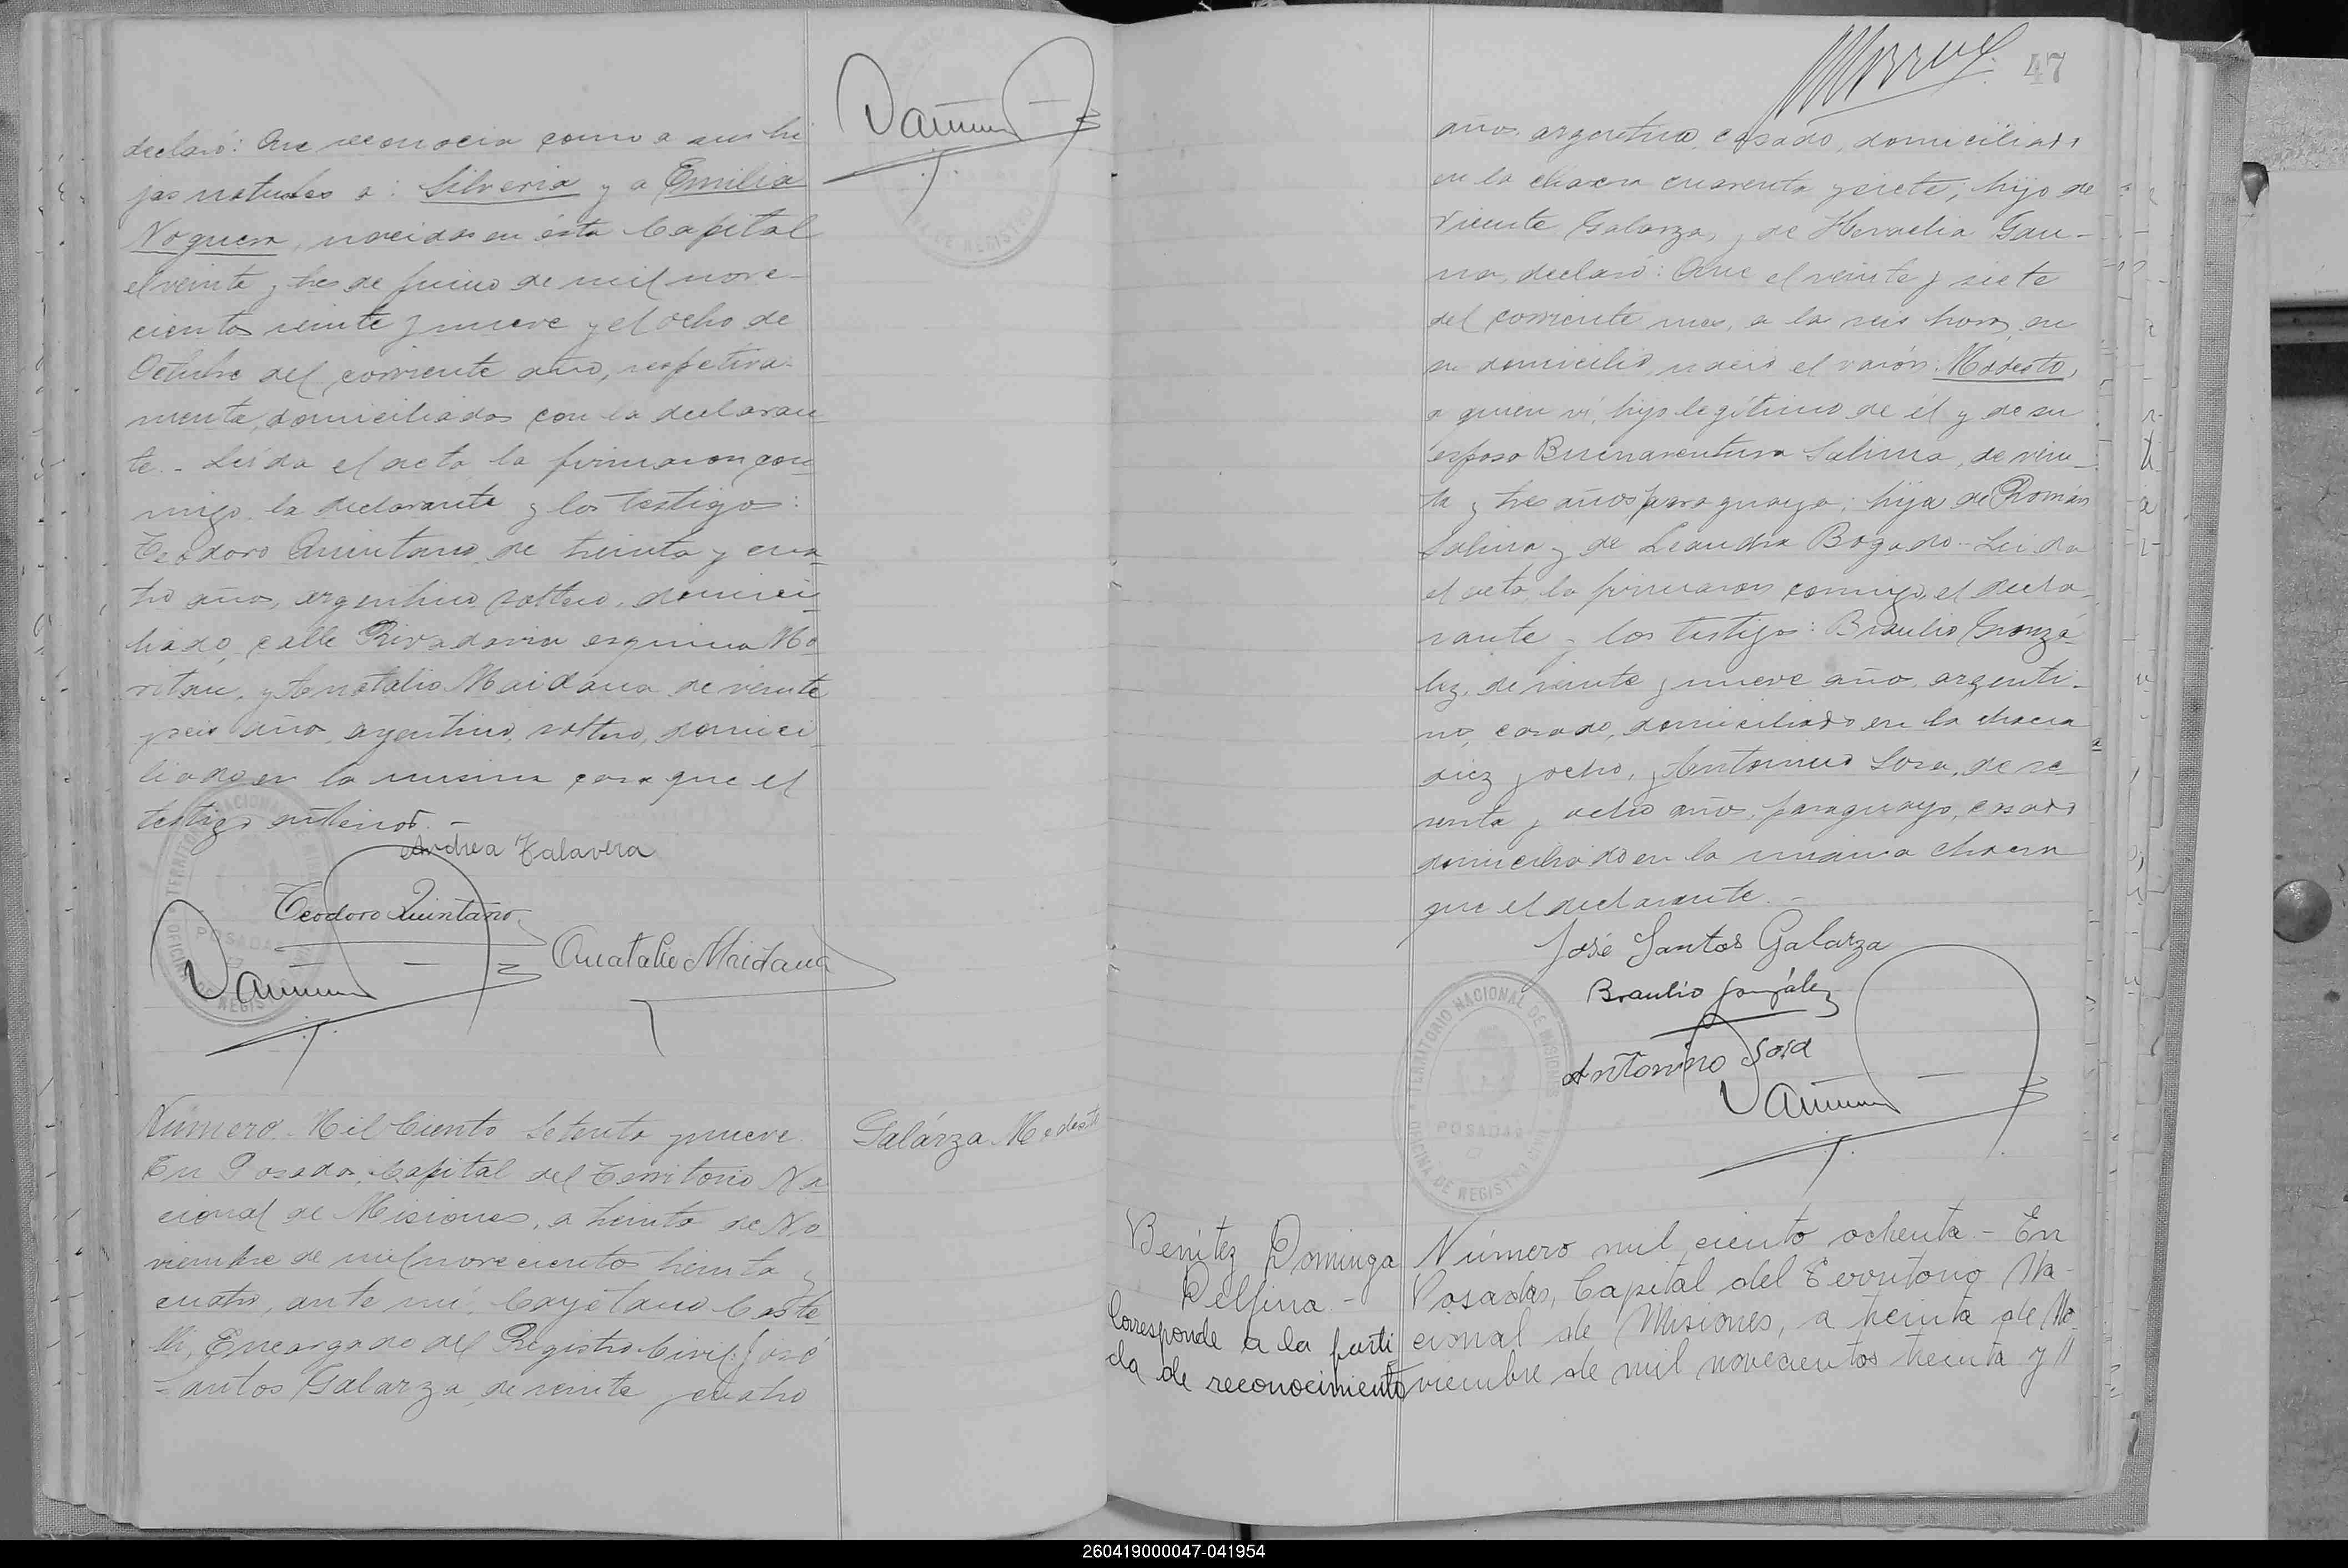 declaró: Que reconocia como a sus hi
jas naturales a: Silveria y a Emilia
Noguera, nacidas en ésta Capital
el veinte y tres de Junio de mil nove-
cientos veinte y nueve y el ocho de
Octubre del corriente año, respetiva-
mente, domiciliados con la declaran
te.- Leída el acta la firmaron con
migo, la declarante y los testigos:
Teodoro Quintana, de treinta y cua
tro años, argentino, soltero, domici-
liado, calle Rivadavia esquina
y Anatalio Maidana de veinte
y seis años, argentino, soltero, domici
liado en la misma casa que el
testigo anterior.-
Andrea Talavera
Teodoro Quintano
Anatalio Maidana
TERRITORIO NACIONAL DE MISIONES
POSADAS
OFICINA DE REGISTRO CIVIL
Número Mil Ciento Setenta y nueve.
En Posadas, Capital del Territorio Na
cional de Misiones, a treinta de No
viembre de mil novecientos treinta y
cuatro, ante mí, Cayetano Caste
lli, Encargado del Registro Civil, José
Santos Galarza, de veinte y cuatro
Galárza Modesto
47
años, argentino, casado, domiciliado
en la chacra cuarenta y siete, hijo de
Vicente Galarza, y de Heraclia Gau-
na, declaró: Que el veinte y siete
del corriente mes, a las seis horas, en
su domicilio, nació el varón: Modesto,
a quien ví, hijo legítimo de él y de su
esposa Buenaventura Salina, de vein-
te y tres años, paraguaya; hija de Román
Salina y de Leandra Bogado.- Leida
el acta, la firmaron conmigo, el decla-
rante y los testigos: Braulio Gonzá-
lez, de veinte y nueve años, argenti-
no, casado, domiciliado en la chacra
diez y ocho, y Antonino Sosa, de se
senta y ocho años, paraguayo, casado
domiciliado en la misma chacra
que el declarante.-
José Santos Galarza
Braulio González
Antonino Sosa
TERRITORIO NACIONAL DE MISIONES
POSADAS
OFICINA DE REGISTRO CIVIL
Benítez Dominga
Delfina.-
Corresponde a la parti
da de reconocimiento
Número mil ciento ochenta - En
Posadas, Capital del Territorio Na-
cional de Misiones, a treinta de No-
viembre de mil novecientos treinta y //
260419000047-041954